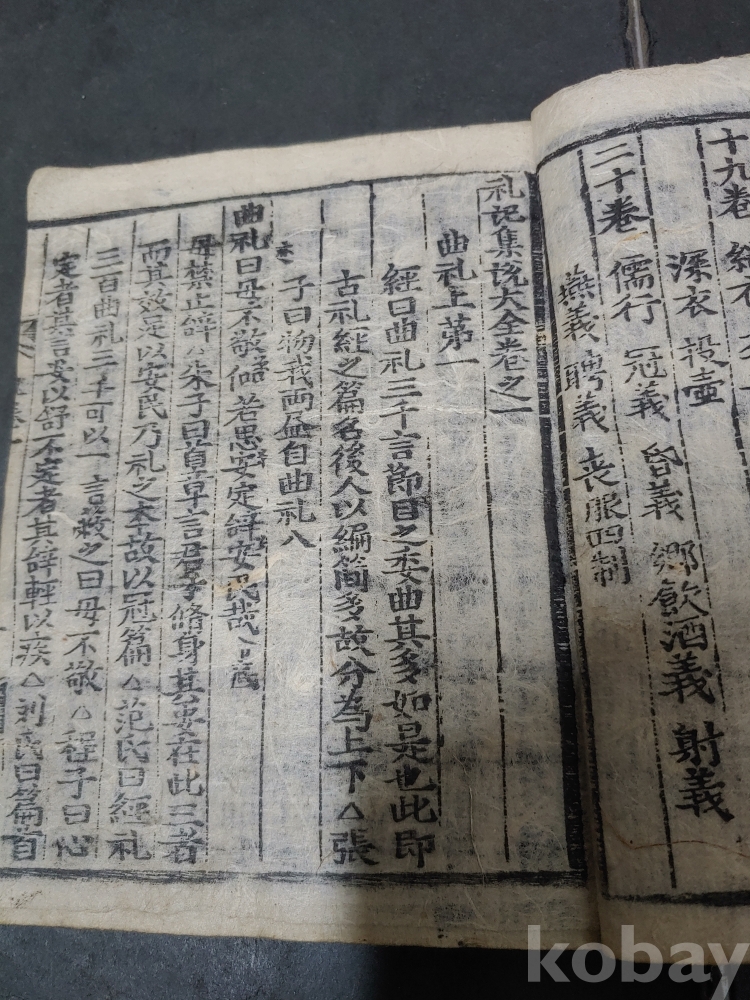 十九卷
深衣 投壺
二十卷 儒行 冠義 昏義 鄉飲酒義 射義
燕義 聘義 丧服四制
礼记集说大全卷之一
曲礼上苐一
經曰曲礼三千言節目之委曲其多如是也此即
古礼經之篇名後人以編简多故分為上下△張
子曰物我两盡自曲礼入
曲礼曰毋不敬儼若思安定辞安民哉
毋禁止辞△朱子曰首章言君子脩身其要在此三者
而其效足以安民乃礼之本故以冠篇△范氏曰經礼
三百曲礼三千可以一言蔽之曰毋不敬△程子曰心
定者其言安以舒不定者其辞軽以疾△刘氏曰篇首
kobay